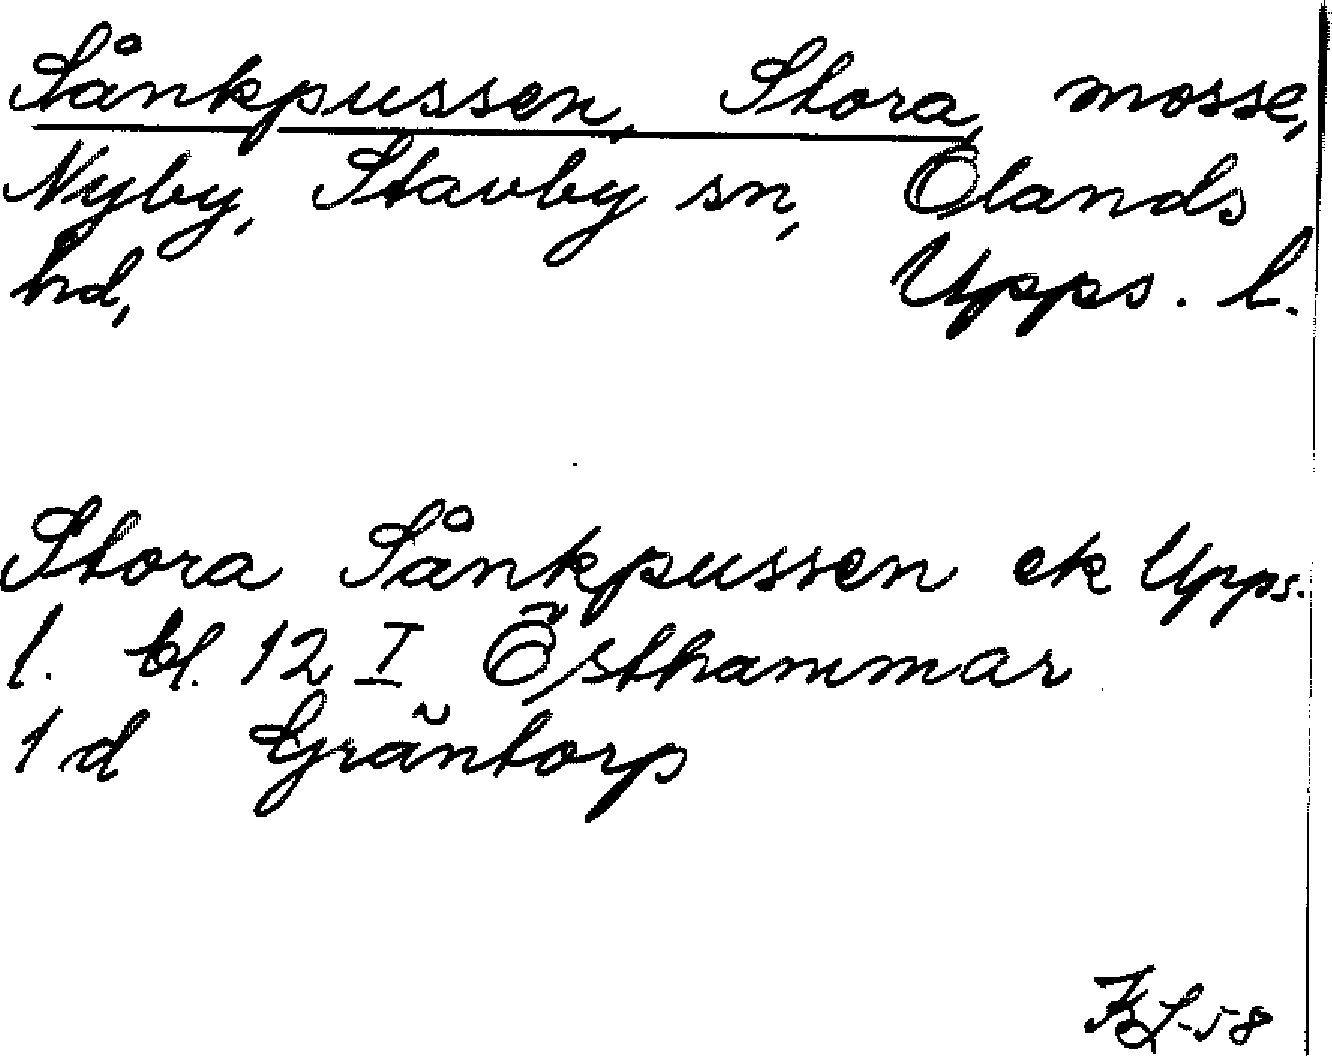 Sånkpussen, Stora, mosse,
Nyby, Stavby sn, Olands
hd, Upps. l.
Stora Sånkpussen ek Upps.
l. bl. 12 I Östhammar
1 d Gräntorp